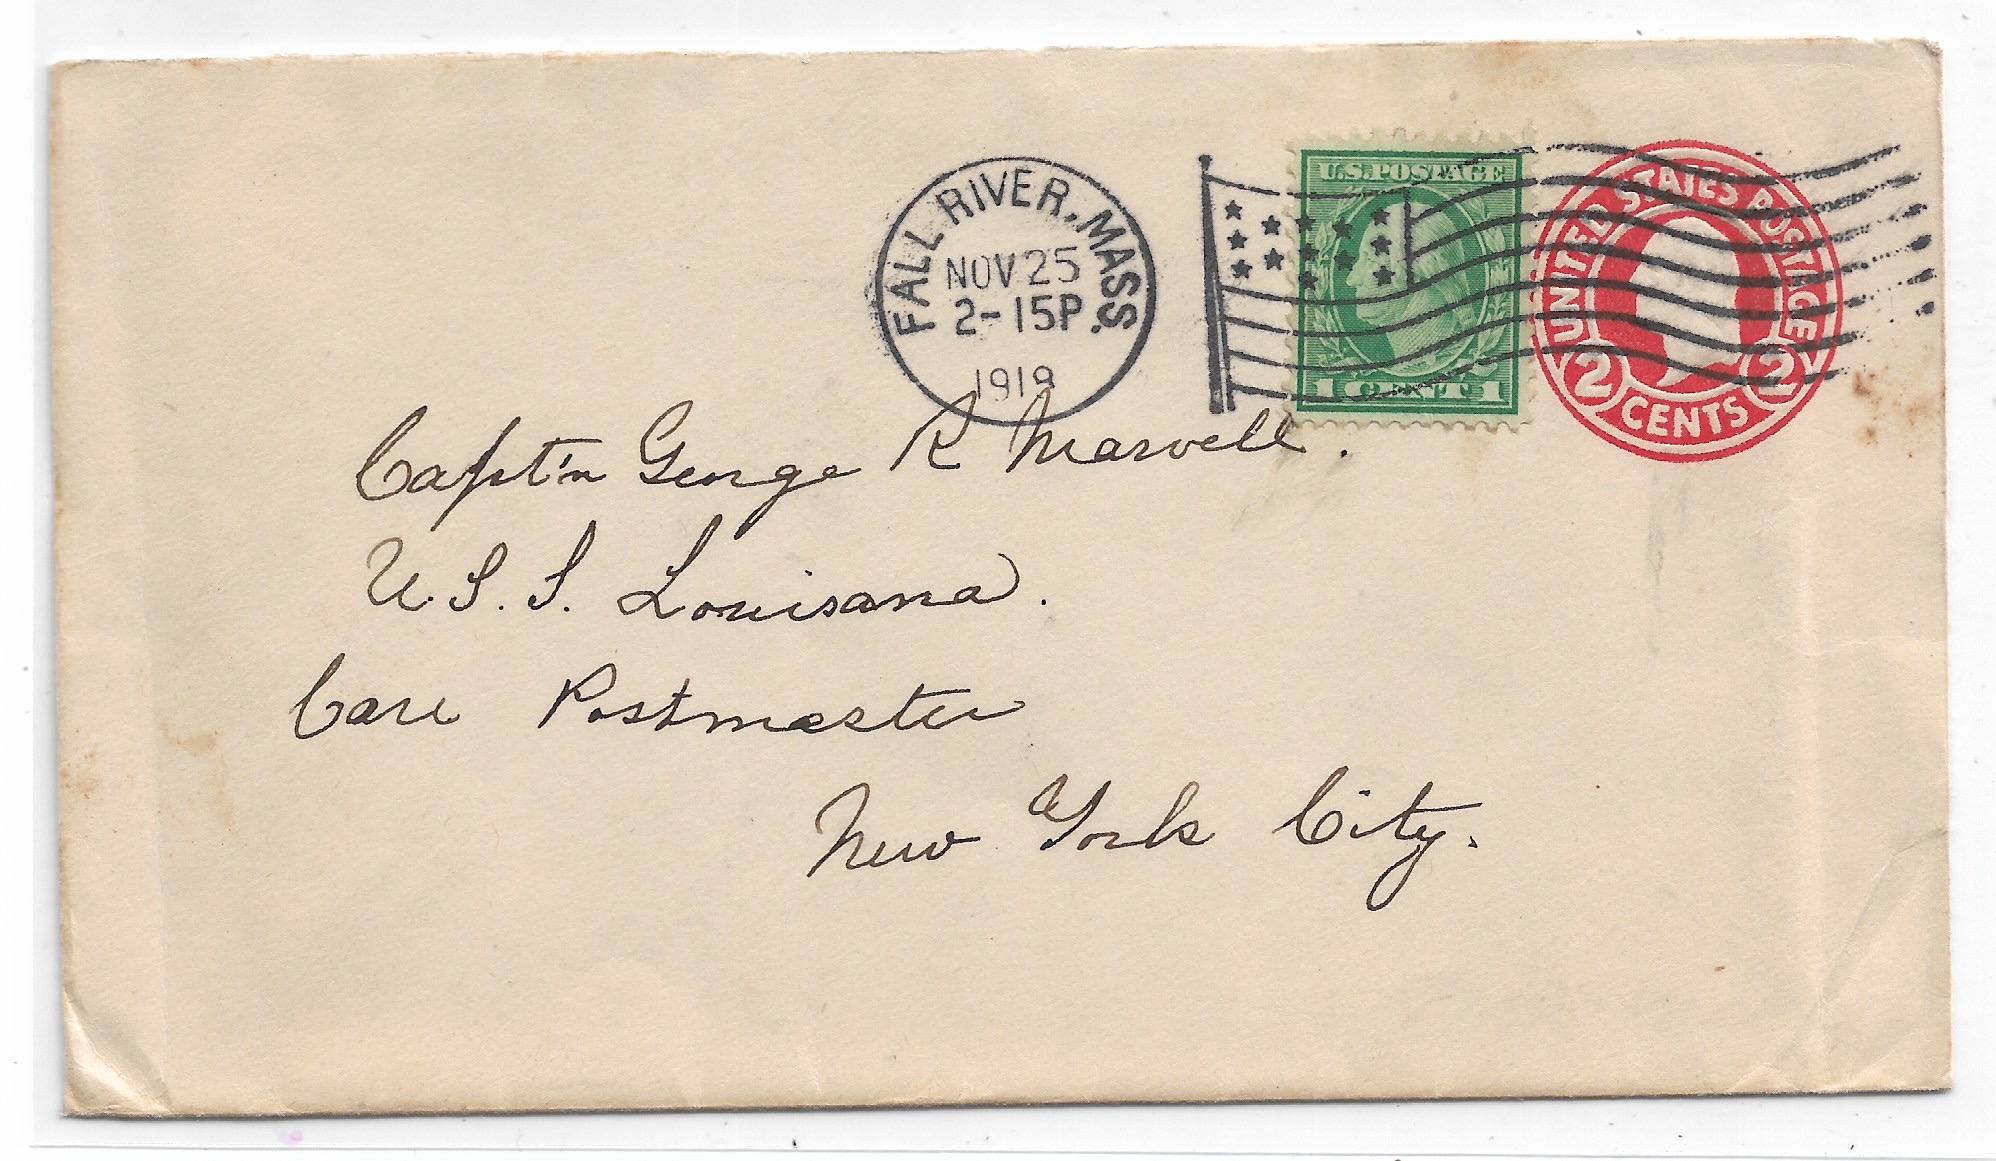 FALL RIVER, MASS.
NOV 25
2-15P
1918
U.S. POSTAGE
1 CENT 1
UNITED STATES POSTAGE
2 CENTS 2
Capt'n George R Marvell.
U.S.S. Louisana.
Care Postmaster
New York City.